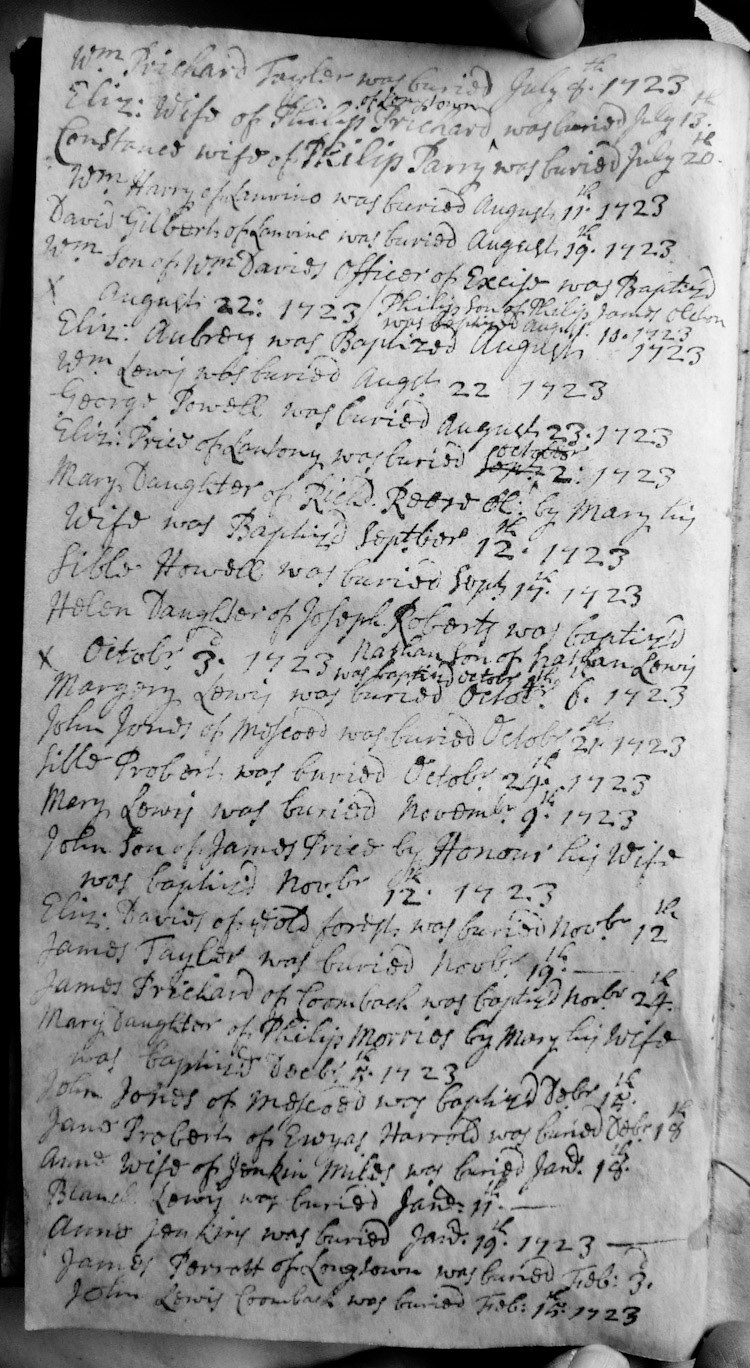 Wm. Prichard Tayler was buried July 4th. 1723
of Longtown
Eliz: Wife of Philip Prichard was buried July 13th.
Constance wife of Philip Parry was buried July 20th.
Wm. Harry of Lanvino was buried August 11th. 1723
David Gilbert of Lanvine was buried August 19th. 1723
Wm Son of Wm Davies Officer of Excise was Baptiz'd
x August 22: 1723 / Philip Son of Philip James
was baptized August 10. 1723
Eliz: Aubrey was Baptized August 1723
Wm. Lewis was buried Augst. 22 1723
George Powell was buried August 23. 1723
October
Eliz: Price of Lantony was buried Sept: 2: 1723
Mary Daughter of Richd. by Mary his
Wife was Baptiz'd Septber 12th. 1723
Sible Howell was buried Sept 17th. 1723
Helen Daughter of Joseph Roberts was baptiz'd
x Octobr. 3d. 1723 Nathan Son of Nathan Lewis
was baptiz'd Octobr
Margery Lewis was buried Octobr. 6. 1723
John Jones of Mescoed was buried Octobr 21st. 1723
Sible Probert was buried Octobr. 24th. 1723
Mary Lewis was buried Novembr 9th. 1723
John Son of James Price by Honour his Wife
was baptiz'd Novbr 12th. 1723
Eliz: Davies of old forest was buried Novbr 12th
James Tayler was buried Novbr. 19th.
James Prichard of Coomback was baptiz'd Novbr 24th.
Mary Daughter of Philip Morries by Mary his Wife
was baptiz'd Decbr 1723
John Jones of Mescoed was baptiz'd Debr 15th.
Jane Probert of Ewyas Harrold was buried Debr 18th
Anne Wife of Jenkin Miles was buried Jan:
Blanch Lewis was buried Jan: 11th.
Anne Jenkins was buried Jan: 19th. 1723
James Perrott of Longtown was buried Feb: 3d.
John Lewis Coomback was buried Feb: 15th: 1723